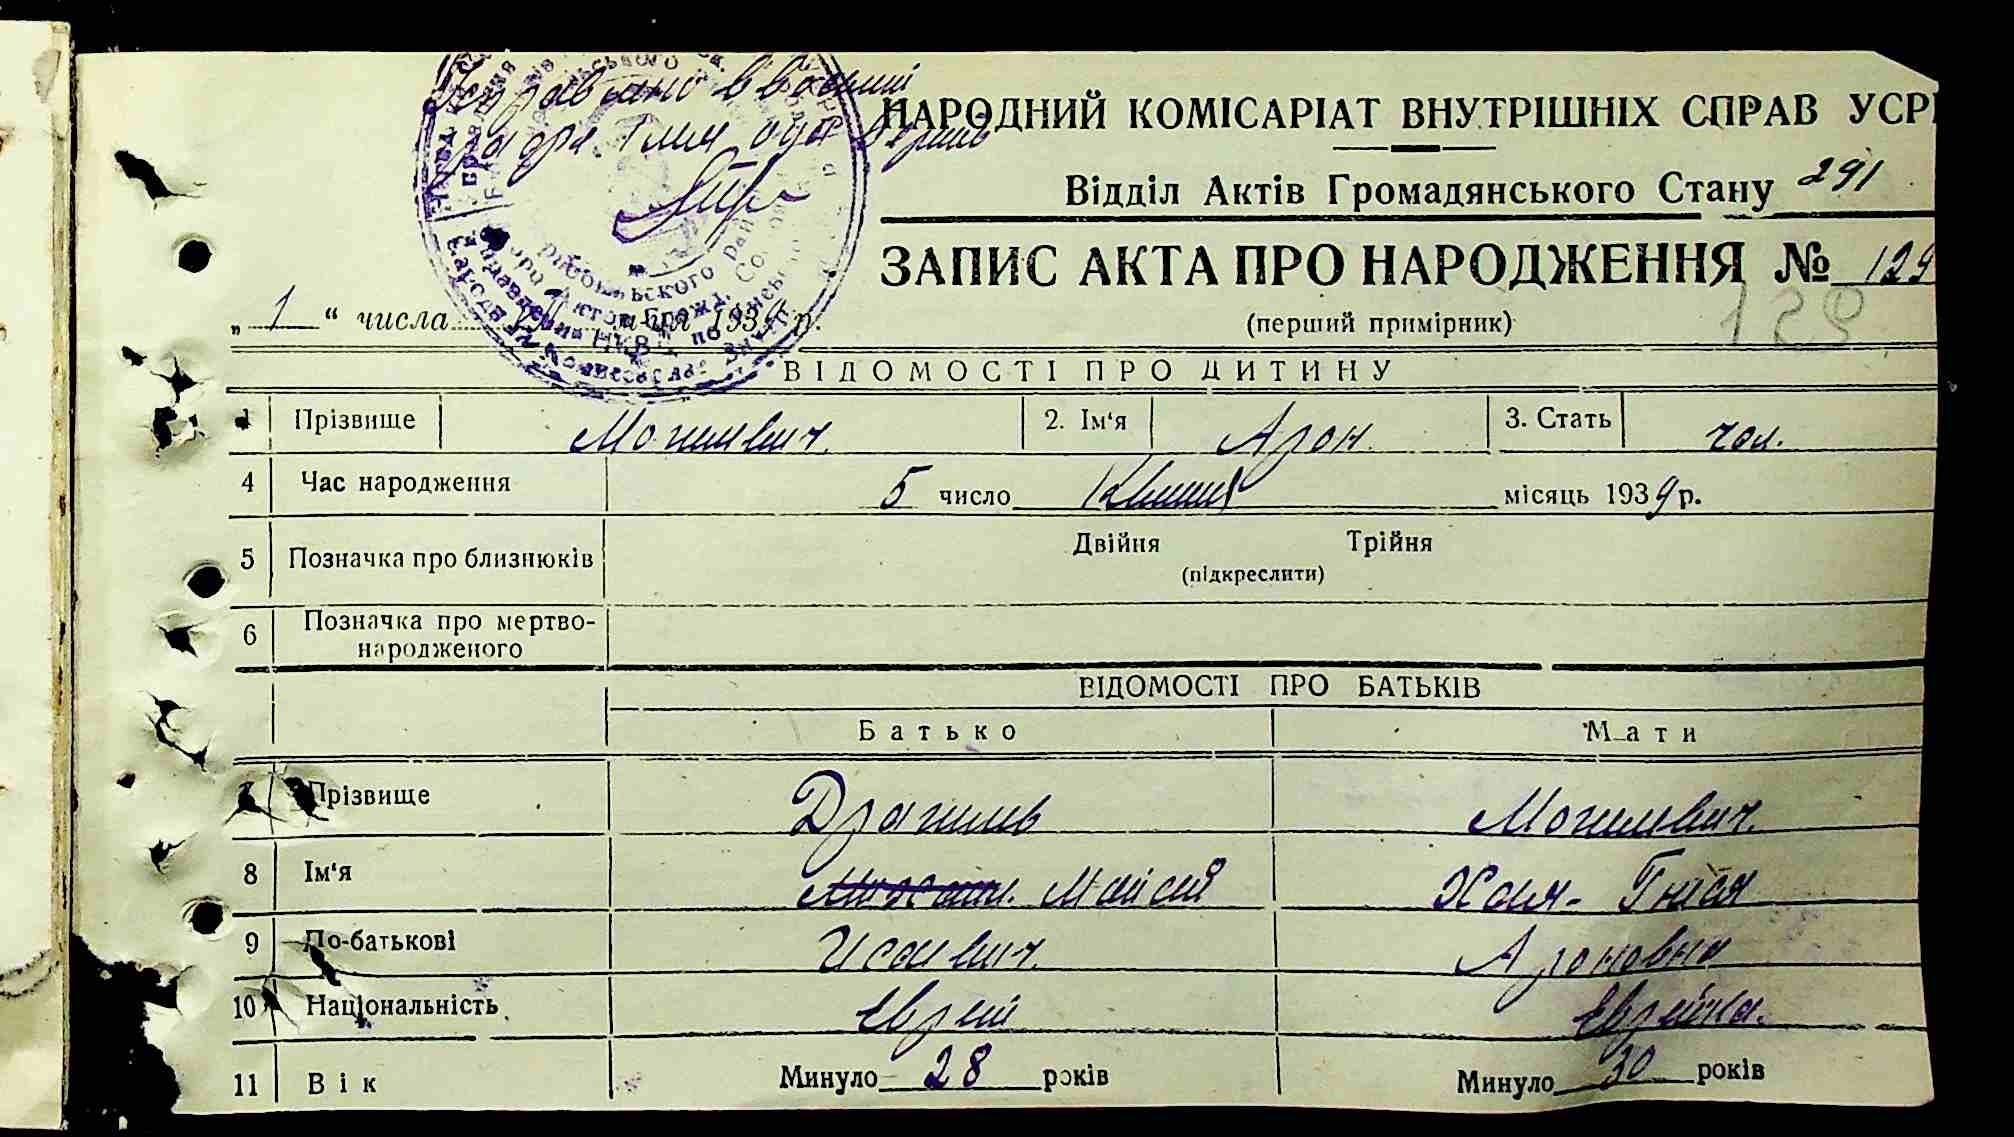 Исправлено в восьмій
графі імя одне вірить
НАРОДНИЙ КОМІСАРІАТ ВНУТРІШНІХ СПРАВ УСРР
Відділ Актів Громадянського Стану 291
ЗАПИС АКТА ПРО НАРОДЖЕННЯ № 129
„ 1 “ числа м-ця 1939 р.
(перший примірник) 129
ВІДОМОСТІ ПРО ДИТИНУ
1 Прізвище Могилевич. 2. Ім'я Арон. 3. Стать чол.
4 Час народження 5 число Квітня місяць 1939 р.
5 Позначка про близнюків Двійня Трійня
(підкреслити)
6 Позначка про мертво-
народженого
ВІДОМОСТІ ПРО БАТЬКІВ
Батько Мати
7 Прізвище Драгилев Могилевич.
8 Ім'я Михаил. Мойсей Хая-Гнися
9 По-батькові Исаевич. Ароновна
10 Національність Еврей Еврейка.
11 Вік Минуло 28 років Минуло 30 років